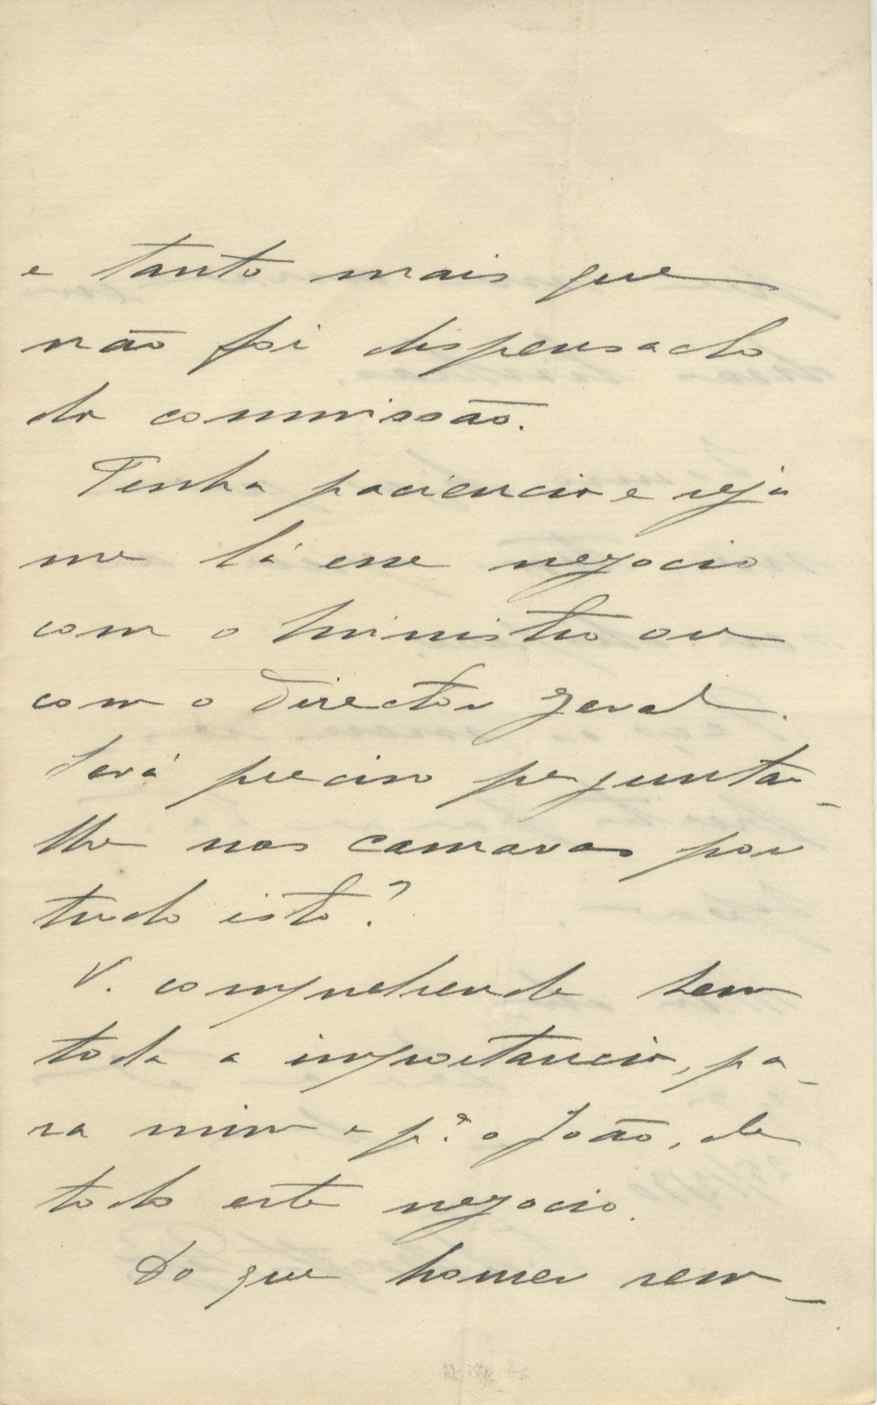 e tanto mais que
não foi dispensado
da commissão.
Tenha paciencia e veja
me lá esse negocio
com o ministro ou
com o Director geral.
Será preciso pergunta-
lhe nas camaras por
tudo isto?
V. comprehende bem
toda a importancia, pa-
ra mim e p.ª o João, de
todo este negocio.
Do que houver rem-